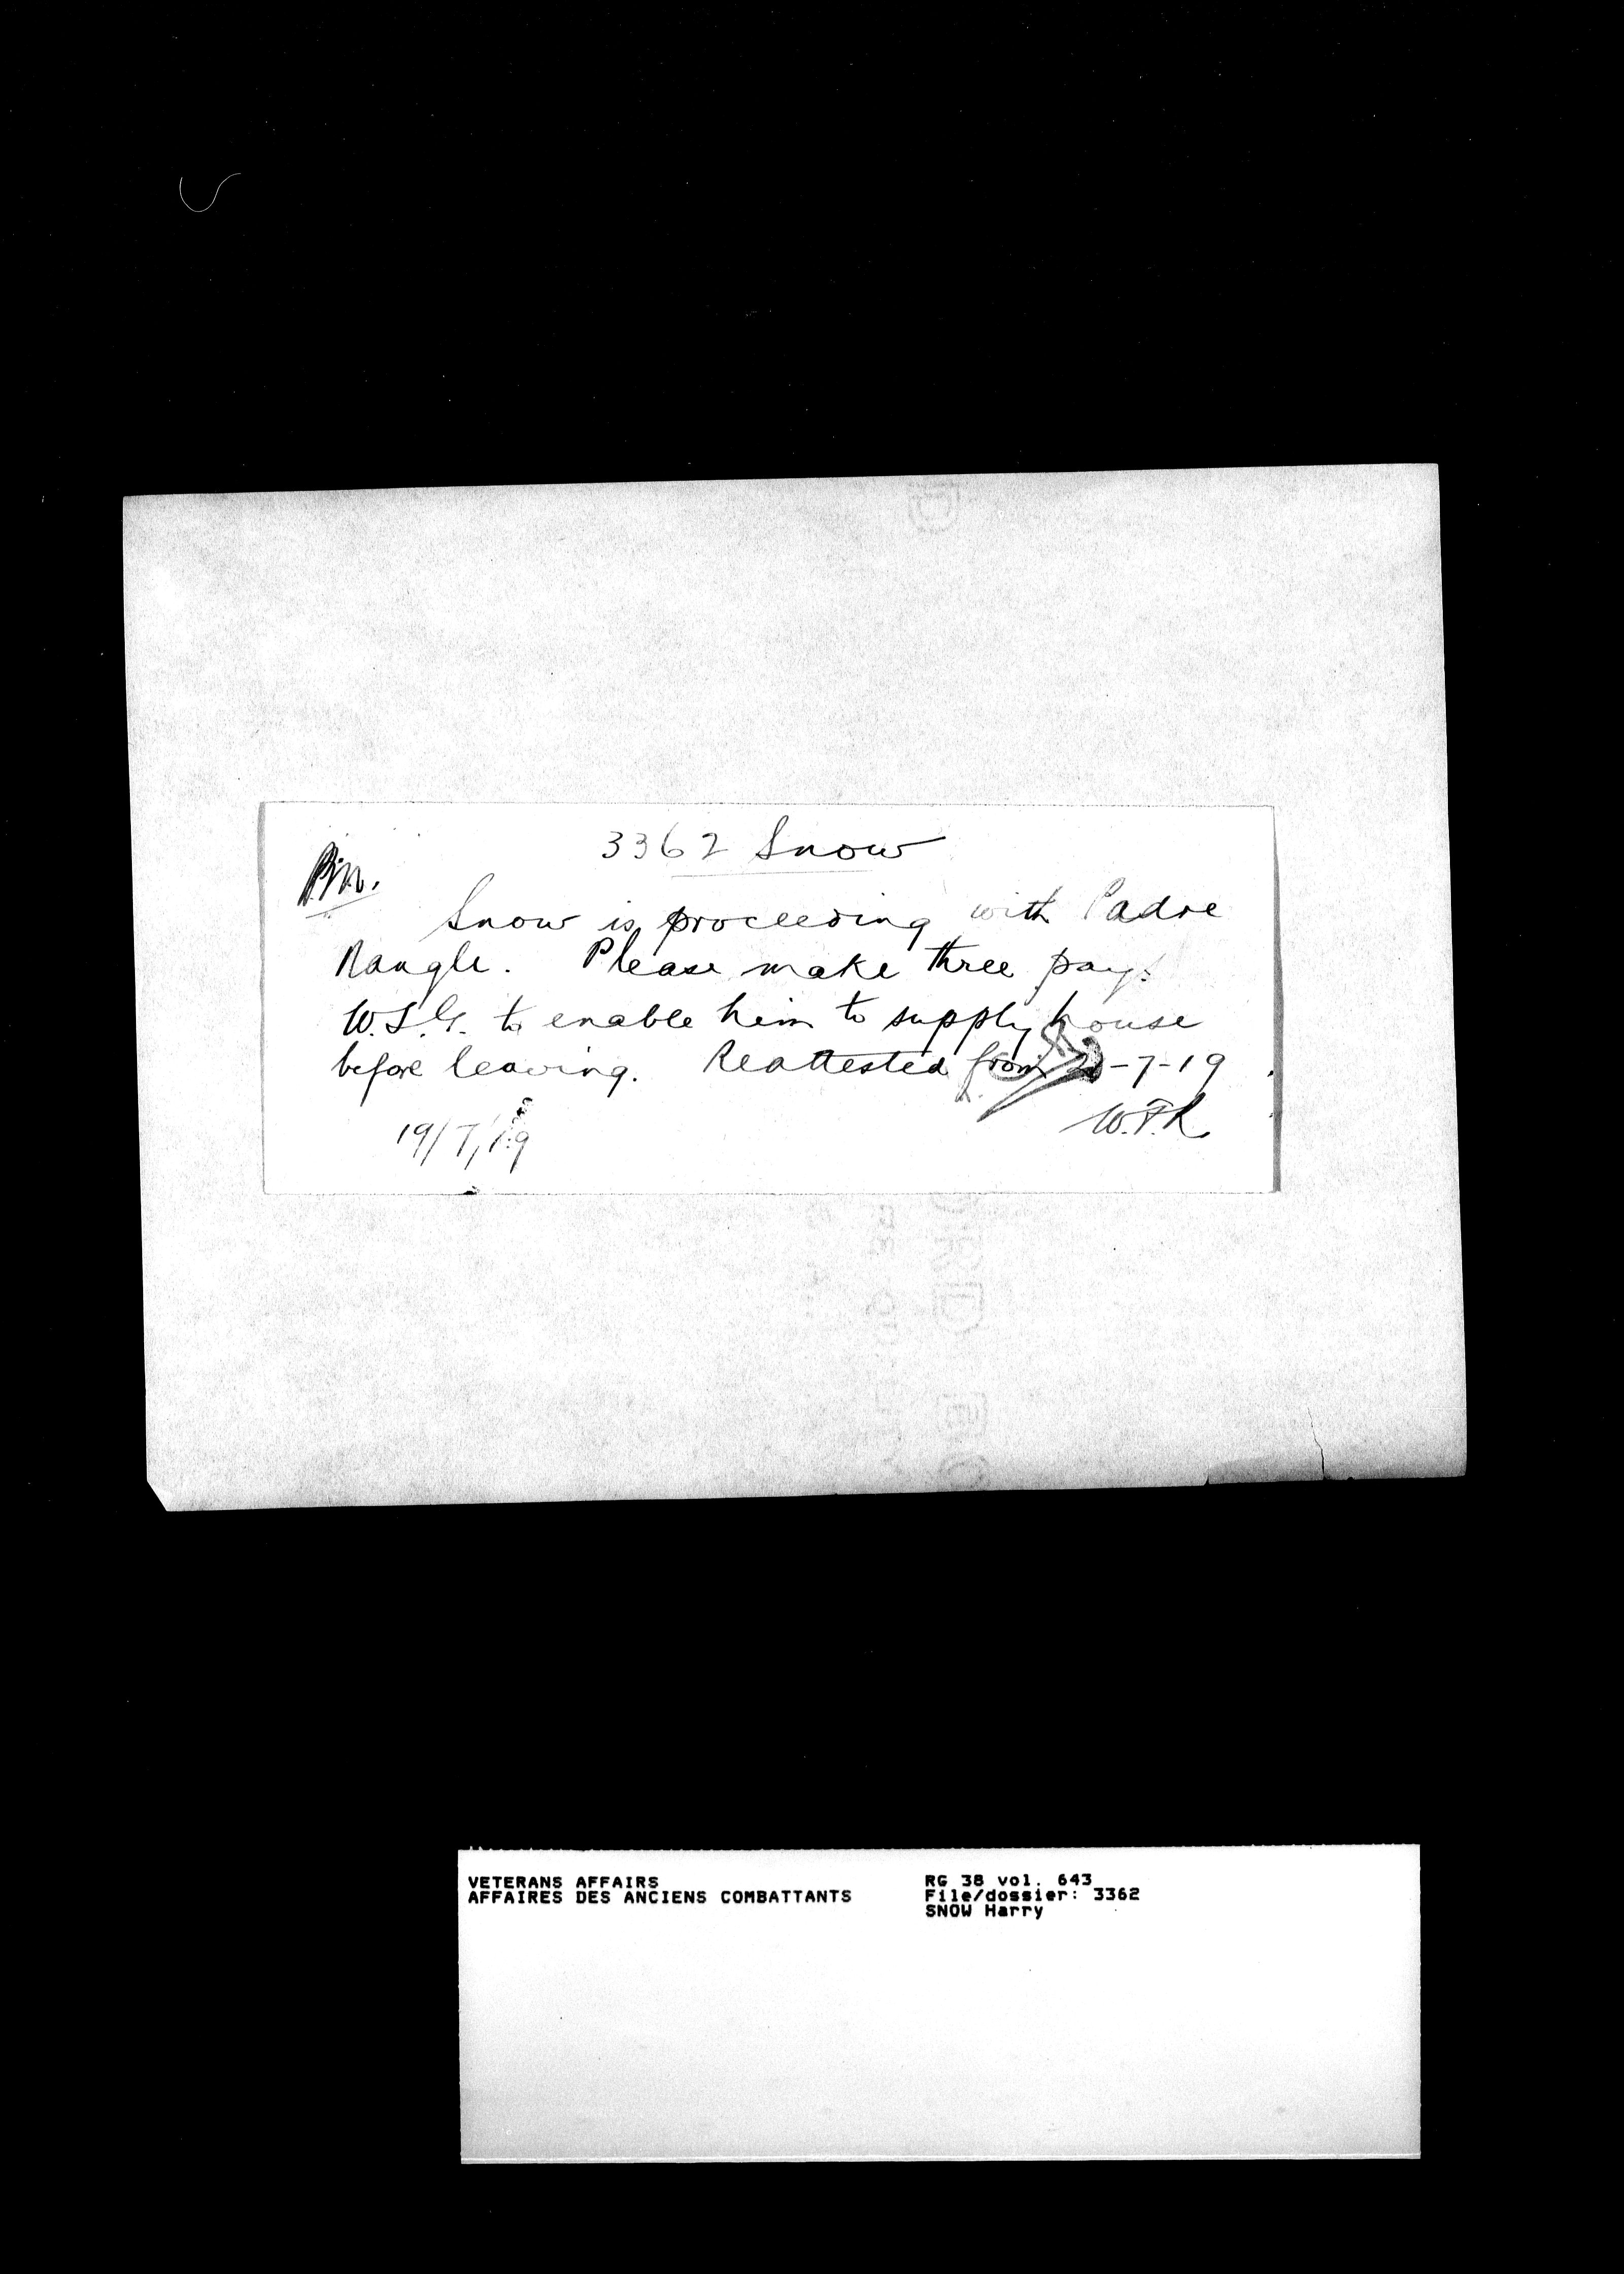 3362 Snow
P.M.
Snow is proceeding with Padre
Nangle. Please make three pays
W.S.G. to enable him to supply house
before leaving. Reattested from -7-19
19/7/19
W.F.R.
VETERANS AFFAIRS
AFFAIRES DES ANCIENS COMBATTANTS
RG 38 vol. 643
File/dossier: 3362
SNOW Harry